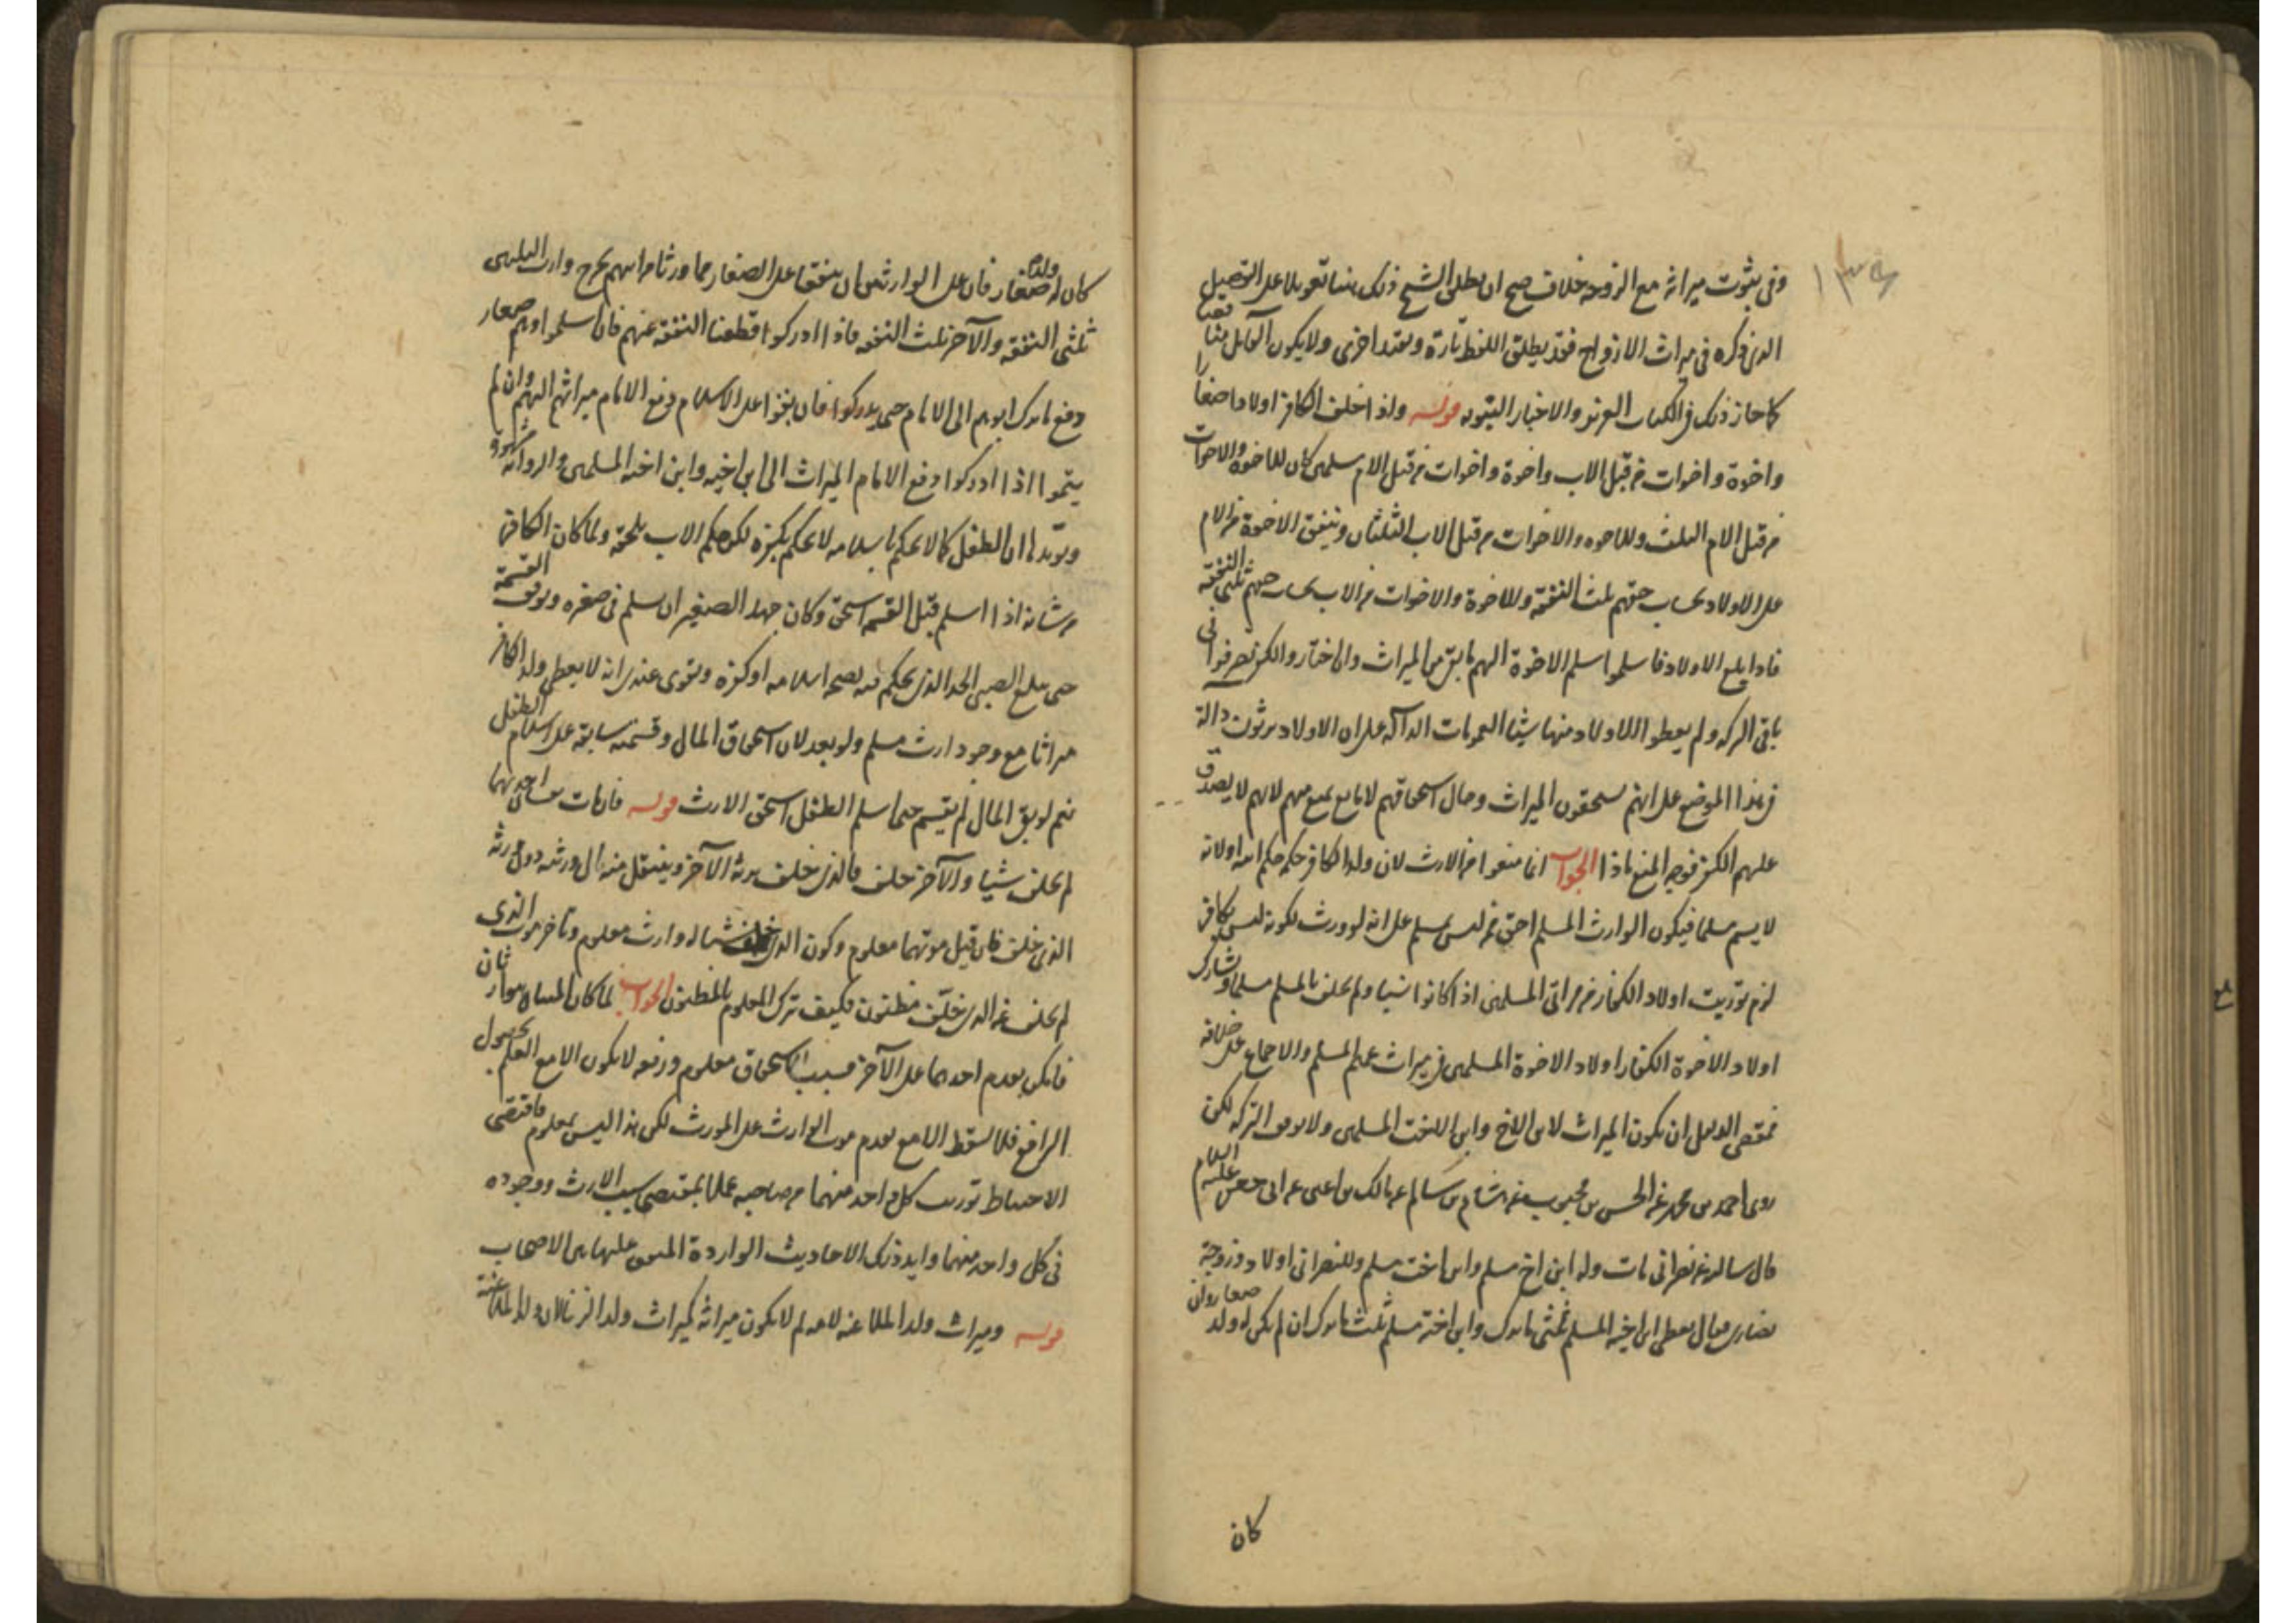 ١٣٤
وفي ثبوت ميراثه مع الزوجة خلاف صح ان يطلق الشيخ ذلك هنا تعويلا على التفصيل
الذي ذكره في ميراث الازواج فقد يطلق اللفظ تارة ويقيد اخرى ولا يكون القائل مناقضا
كما جاز ذلك في الكتاب العزيز والاخبار النبويه قوله واذا خلف الكافر اولادا صغارا
واخوة واخوات من قبل الاب واخوة واخوات من قبل الام مسلمين كان للاخوة والاخوات
من قبل الام الثلث وللاخوه والاخوات من قبل الاب الثلثان وينفق الاخوة من الام
على الاولاد بحساب حقهم ثلث النفقة وللاخوة والاخوات من الاب بحساب حقهم ثلثي النفقة
فاذا بلغ الاولاد فاسلموا سلم الاخوة اليهم ما بقي من الميراث وان اختاروا الكفر تصرفوا في
باقي التركه ولم يعطوا الاولاد منها شيئا العمومات الدالة على ان الاولاد يرثون دالة
في هذا الموضع على انهم يستحقون الميراث وحال استحقاقهم لا مانع يمنع منهم لانهم لا يصدق
عليهم الكفر فوجه المنع ماذا الجواب انما منعوا من الارث لان ولد الكافر حكمه حكم ابيه او لانه
لا يسمى مسلما فيكون الوارث المسلم احق ممن ليس بمسلم على انه لو ورث لكونه ليس بكافر
لزم توريث اولاد الكفار من مواتي المسلمين اذا كانوا شيئا ولم يخلف المسلم مسلما وشارك
اولاد الاخوة الكفار اولاد الاخوة المسلمين في ميراث عمهم المسلم والاجماع على خلافه
فمقتضى الدليل ان يكون الميراث لابن الاخ وابن الاخت المسلمين ولا يوقف التركه لكن
روى احمد بن محمد عن الحسن بن محبوب عن هشام بن سالم عن مالك بن اعين عن ابي جعفر عليه السلام
قال سالته عن نصراني مات وله ابن اخ مسلم وابن اخت مسلم وللنصراني اولاد وزوجة
نصارى فقال يعطى ابن اخيه المسلم ثلثي ما ترك وابن اخته مسلم ثلث ما ترك ان لم يكن له ولد صغار وان
كان
كان له ولد صغار فان على الوارثين ان ينفقا على الصغار مما ورثا من ابيهم يخرج وارث الثلثين
ثلثي النفقه والآخر ثلث النفقه فاذا ادركوا قطعنا النفقه عنهم فان اسلموا وهم صغار
دفع ما ترك ابوهم الى الامام حتى يدركوا فان بقوا على الاسلام دفع الامام ميراثهم اليهم وان لم
يتموا اذا ادركوا دفع الامام الميراث الى ابن اخيه وابن اخته المسلمين والرواية مشهورة
ويؤيدها ان الطفل كما لا يحكم باسلامه لا يحكم بكفره لكن حكم الاب يلحقه ولما كان الكافر
من شانه اذا اسلم قبل القسمه استحق وكان جهد الصغير ان يسلم في صغره ويوقف القسمة
حتى يبلغ الصبي الحد الذي يحكم فيه بصحه اسلامه او كفره ويقوى عندي انه لا يعطى ولد الكافر
ميراثا مع وجود وارث مسلم ولو بعد لان استحقاق المال وقسمته سابقه على اسلام الطفل
نعم لو بقي المال لم يقسم حتى اسلم الطفل استحق الارث قوله فان مات احدهما
لم يخلف شيئا والآخر خلف فالذي خلف يرثه الآخر وينتقل منه الى ورثته دون ورثة
الذي خلف فان قيل موتهما معلوم وكون الذي خلف شيئا له وارث معلوم وتاخر موت الذي
لم يخلف عن الذي خلف مظنون فكيف ترك المعلوم بالمظنون الجواب لما كان
فامكن تقدم احدهما على الآخر فسبب الاستحقاق معلوم ورفعه لا يكون الا مع العلم بحصول
الرافع فلا يسقط الا مع تقدم موت الوارث على المورث لكن هذا ليس بمعلوم فاقتضى
الاحتياط توريث كل واحد منهما من صاحبه عملا بمقتضى سبب الارث ووجوده
في كل واحد منهما وايد ذلك الاحاديث الواردة المتفق عليها بين الاصحاب
قوله وميراث ولد الملاعنه لامه لم لا يكون ميراثه كميراث ولد الزنا لان ولد الملاعنة